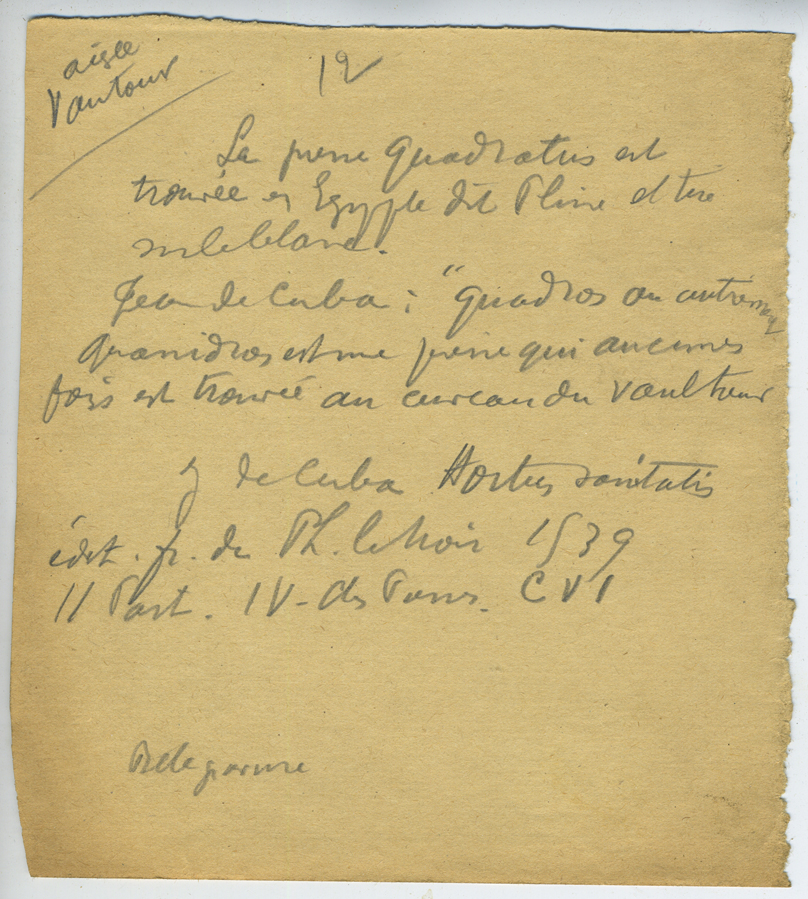 aigle
Vautour
12
La pierre Quadratus est
trouvée en Egypte dit Pline et tire
sur le blanc.
Jean de Cuba : "Quadros ou autrement
Quanidros est une pierre qui aucunes
fois est trouvée au cerveau du Vaultour
J de Cuba Hortus sanitatis
édit. fr. de Ph. le Noir 1539
II Part. IV - des Pierres. CVI